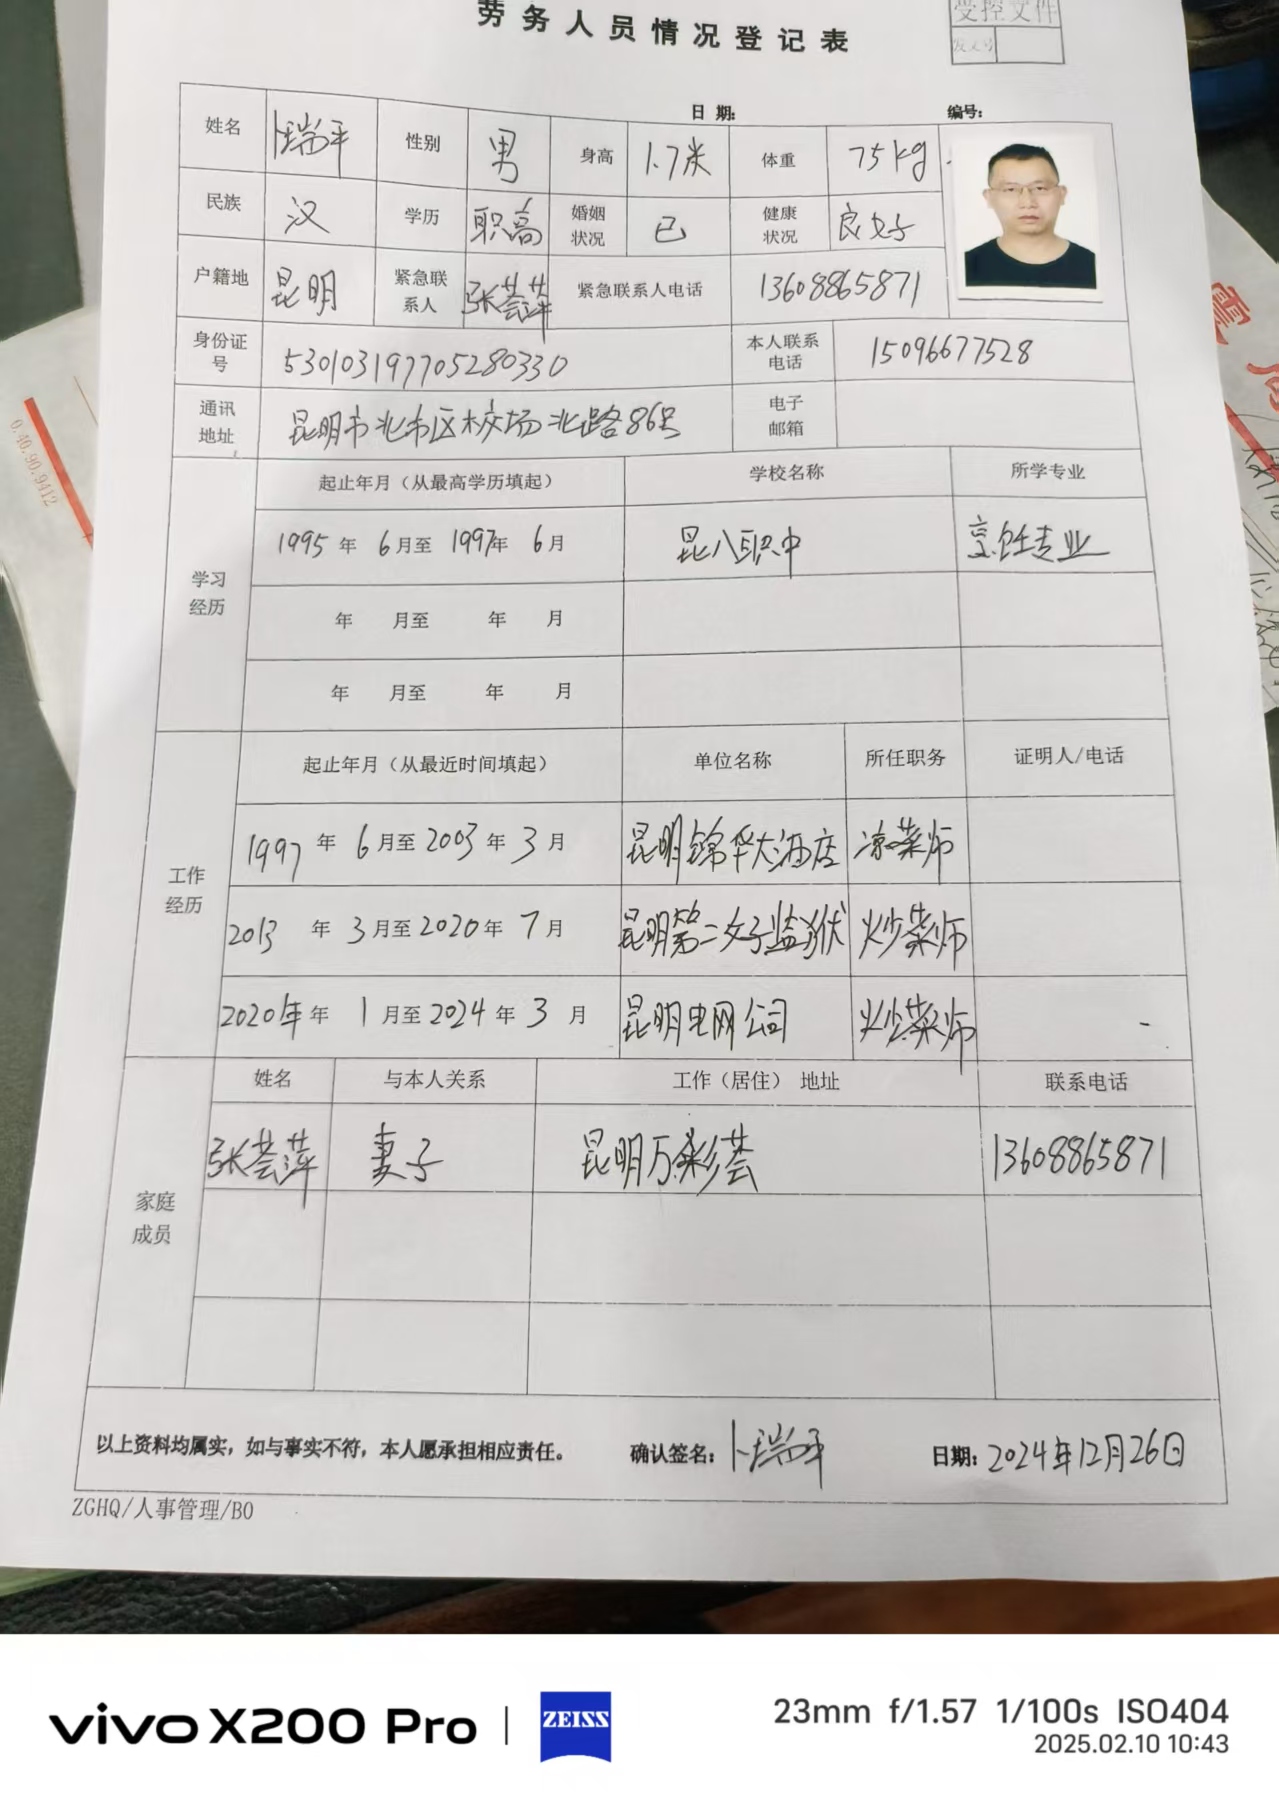 劳务人员情况登记表
受控文件
发文号
日期: 编号:
姓名 卜瑞平 性别 男 身高 1.7米 体重 75kg
民族 汉 学历 职高 婚姻状况 已 健康状况 良好
户籍地 昆明 紧急联系人 张荟萍 紧急联系人电话 13608865871
身份证号 530103197705280330 本人联系电话 15096677528
通讯地址 昆明市北市区木交场北路86号 电子邮箱
学习经历
起止年月（从最高学历填起） 学校名称 所学专业
1995年 6月至 1997年 6月 昆八职中 烹饪专业
年 月至 年 月
年 月至 年 月
工作经历
起止年月（从最近时间填起） 单位名称 所任职务 证明人/电话
1997 年 6月至2003年 3月 昆明锦华大酒店 凉菜师
2013 年 3月至2020年 7月 昆明第二女子监狱 炒菜师
2020年年 1月至2024年 3月 昆明电网公司 炒菜师
家庭成员
姓名 与本人关系 工作（居住） 地址 联系电话
张荟萍 妻子 昆明万彩荟 13608865871
以上资料均属实，如与事实不符，本人愿承担相应责任。 确认签名：卜瑞平 日期：2024年12月26日
ZGHQ/人事管理/B0
0.40.90.9412
vivo X200 Pro | ZEISS
23mm f/1.57 1/100s ISO404
2025.02.10 10:43